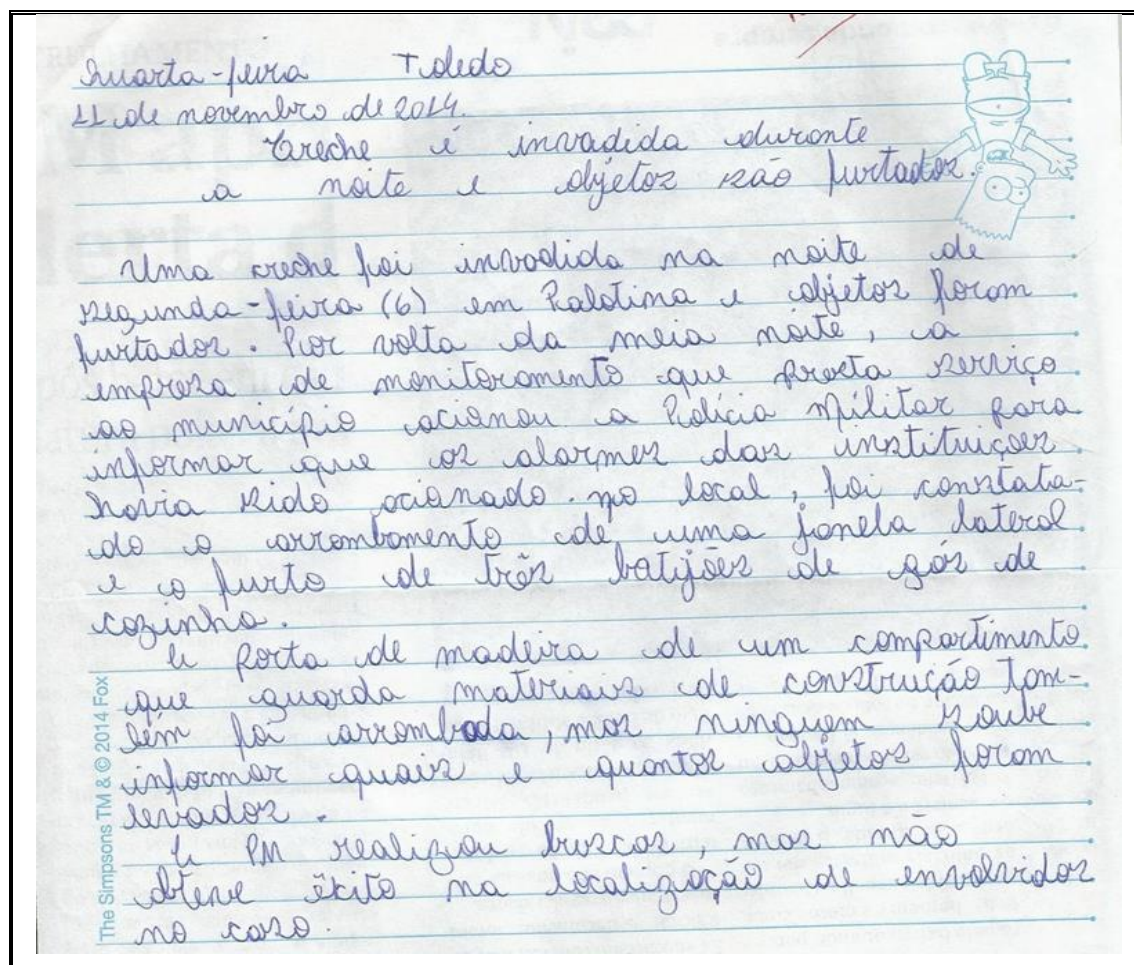 Quarta-feira Toledo
11 de novembro de 2014.
Creche é invadida durante
a noite e objetos são furtados.
Uma creche foi invadida na noite de
segunda-feira (6) em Palotina e objetos foram
furtados. Por volta da meia noite, a
empresa de monitoramento que presta serviço
ao município acionou a Polícia Militar para
informar que os alarmes das instituições
havia sido acionado. No local, foi constata-
do o arrombamento de uma janela lateral
e o furto de três botijões de gás de
cozinha.
A porta de madeira de um compartimento
que guarda materiais de construção tam-
bém foi arrombada, mas ninguem soube
informar quais e quantos objetos foram
levados.
A PM realizou buscas, mas não
obteve êxito na localização de envolvidos
no caso.
The Simpsons TM & © 2014 Fox